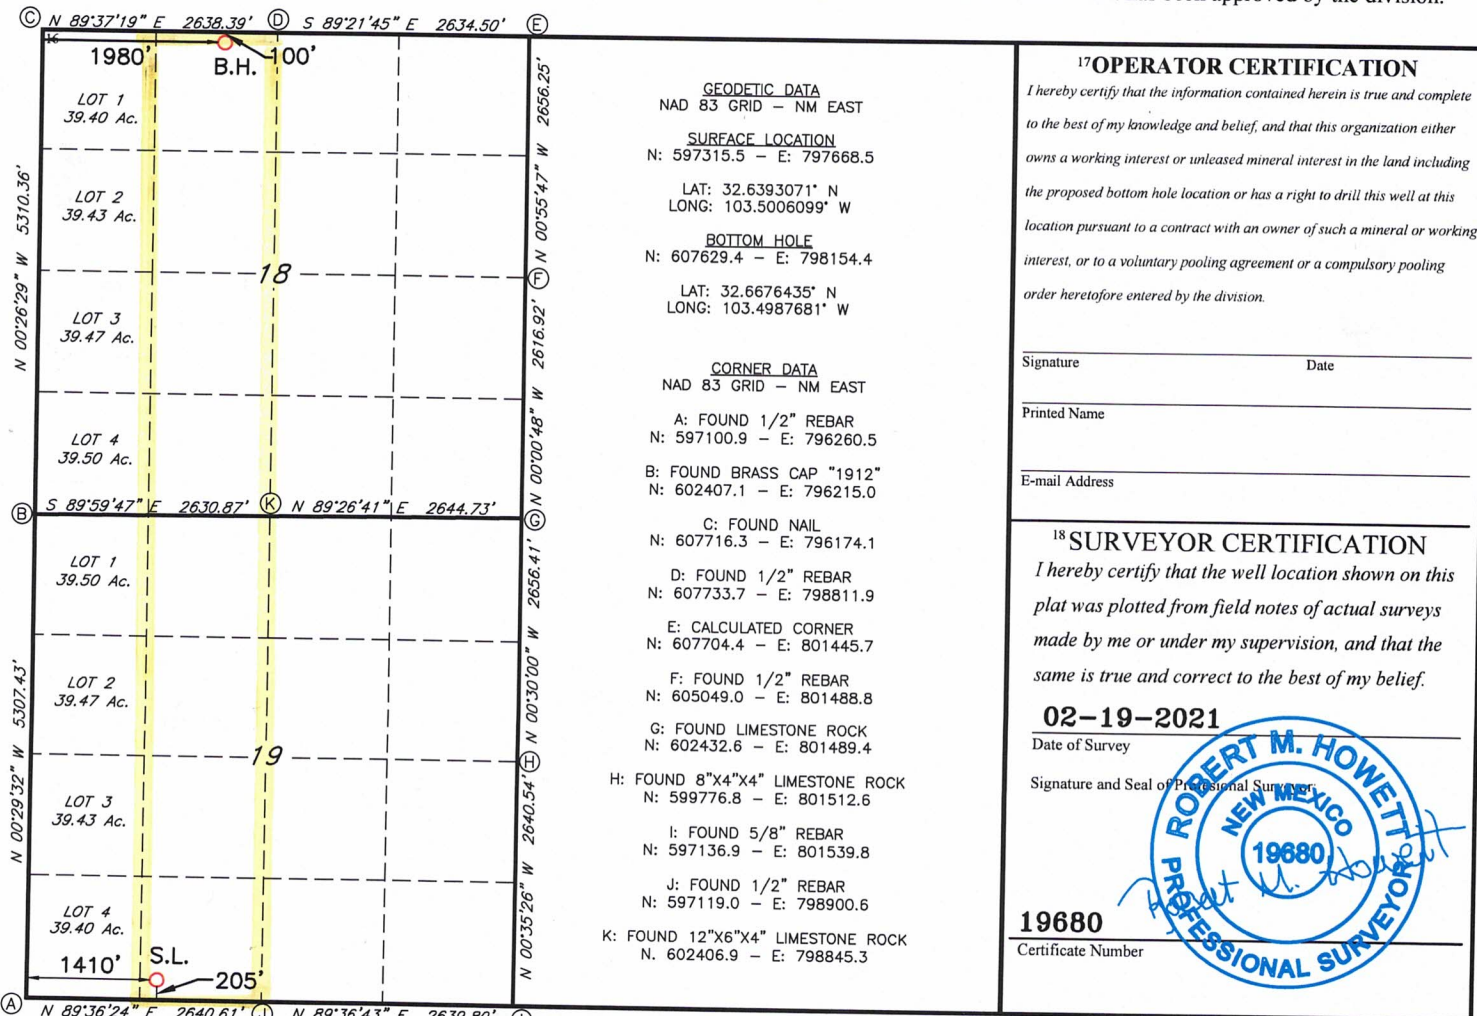 been approved by the division.
C N 89°37'19" E 2638.39' D S 89°21'45" E 2634.50' E
1980'
B.H.
100'
LOT 1
39.40 Ac.
LOT 2
39.43 Ac.
18
LOT 3
39.47 Ac.
LOT 4
39.50 Ac.
N 00°26'29" W 5310.36'
N 00°55'47" W 2656.25'
F
N 00°00'48" W 2616.92'
B S 89°59'47" E 2630.87' K N 89°26'41" E 2644.73' G
LOT 1
39.50 Ac.
LOT 2
39.47 Ac.
19
LOT 3
39.43 Ac.
LOT 4
39.40 Ac.
N 00°29'32" W 5307.43'
N 00°30'00" W 2656.41'
H
N 00°35'26" W 2640.54'
S.L.
1410'
205'
A N 89°36'24" E 2640.61' J N 89°36'43" E 2639.80' I
GEODETIC DATA
NAD 83 GRID – NM EAST
SURFACE LOCATION
N: 597315.5 – E: 797668.5
LAT: 32.6393071° N
LONG: 103.5006099° W
BOTTOM HOLE
N: 607629.4 – E: 798154.4
LAT: 32.6676435° N
LONG: 103.4987681° W
CORNER DATA
NAD 83 GRID – NM EAST
A: FOUND 1/2" REBAR
N: 597100.9 – E: 796260.5
B: FOUND BRASS CAP "1912"
N: 602407.1 – E: 796215.0
C: FOUND NAIL
N: 607716.3 – E: 796174.1
D: FOUND 1/2" REBAR
N: 607733.7 – E: 798811.9
E: CALCULATED CORNER
N: 607704.4 – E: 801445.7
F: FOUND 1/2" REBAR
N: 605049.0 – E: 801488.8
G: FOUND LIMESTONE ROCK
N: 602432.6 – E: 801489.4
H: FOUND 8"X4"X4" LIMESTONE ROCK
N: 599776.8 – E: 801512.6
I: FOUND 5/8" REBAR
N: 597136.9 – E: 801539.8
J: FOUND 1/2" REBAR
N: 597119.0 – E: 798900.6
K: FOUND 12"X6"X4" LIMESTONE ROCK
N. 602406.9 – E: 798845.3
17 OPERATOR CERTIFICATION
I hereby certify that the information contained herein is true and complete
to the best of my knowledge and belief, and that this organization either
owns a working interest or unleased mineral interest in the land including
the proposed bottom hole location or has a right to drill this well at this
location pursuant to a contract with an owner of such a mineral or working
interest, or to a voluntary pooling agreement or a compulsory pooling
order heretofore entered by the division.
Signature Date
Printed Name
E-mail Address
18 SURVEYOR CERTIFICATION
I hereby certify that the well location shown on this
plat was plotted from field notes of actual surveys
made by me or under my supervision, and that the
same is true and correct to the best of my belief.
02-19-2021
Date of Survey
Signature and Seal of Profesional Surveyor:
ROBERT M. HOWETT
NEW MEXICO
19680
PROFESSIONAL SURVEYOR
Robert M. Howett
19680
Certificate Number